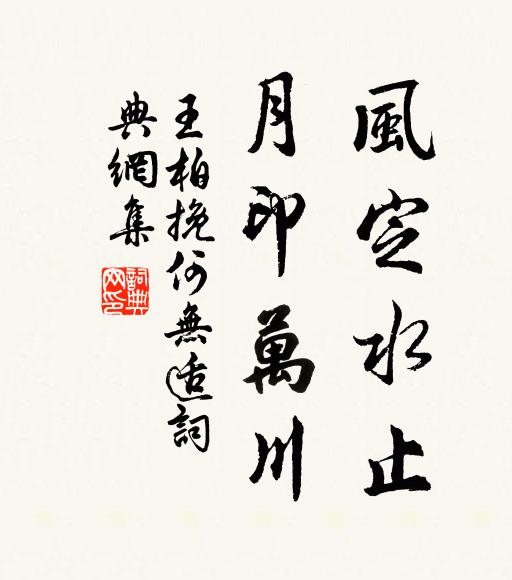 風定水止
月印萬川
王柏挽何無適詞
典網集
詞典網印